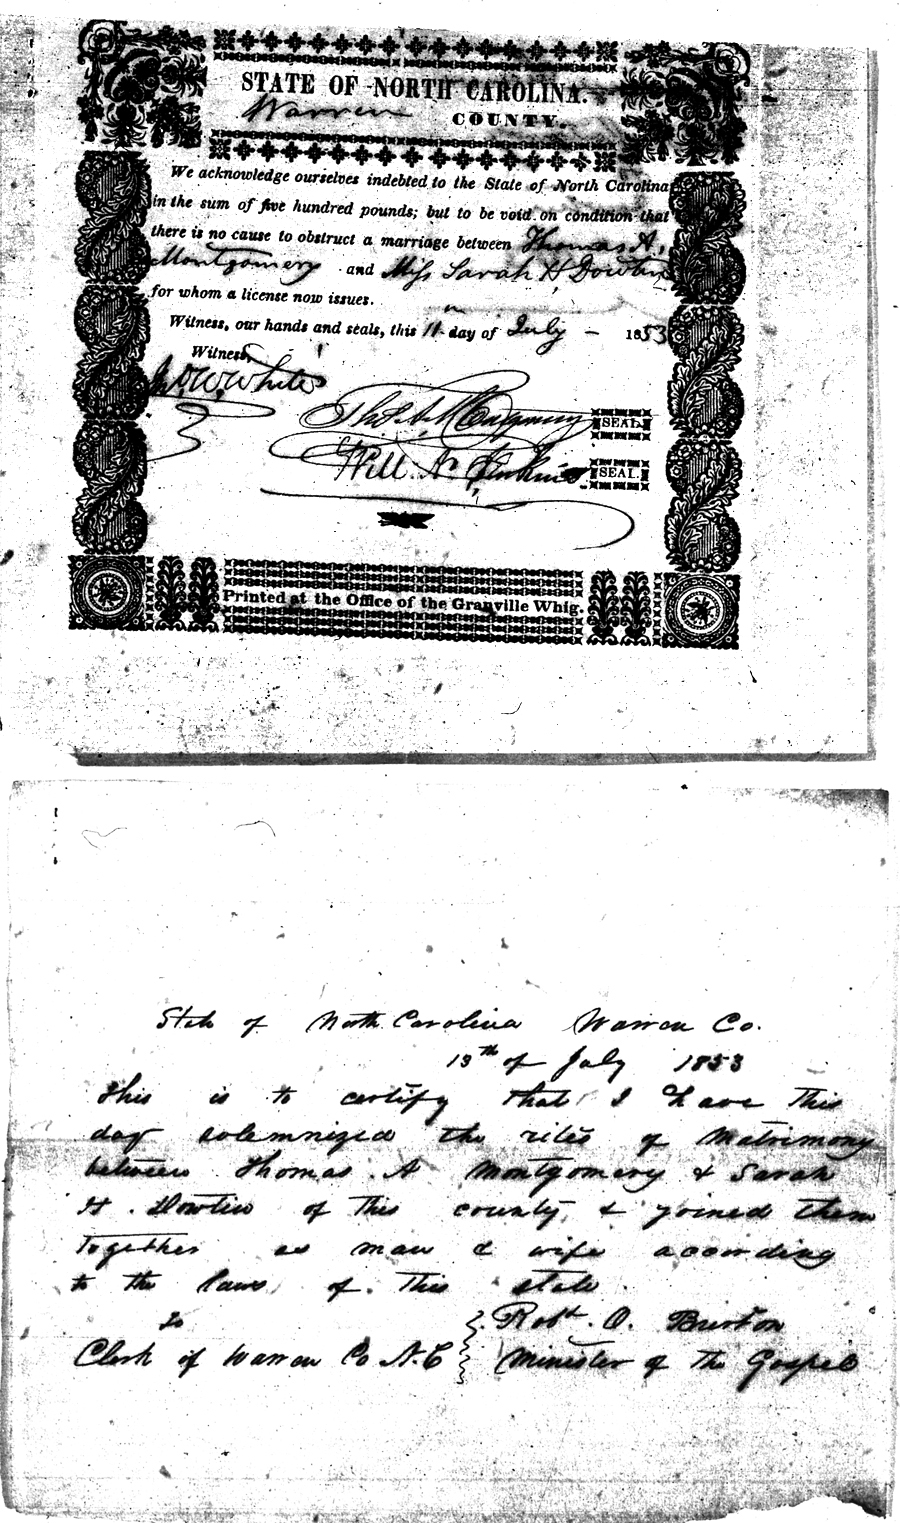 STATE OF NORTH CAROLINA.
Warren COUNTY.
We acknowledge ourselves indebted to the State of North Carolina
in the sum of five hundred pounds; but to be void on condition that
there is no cause to obstruct a marriage between Thomas A,
Montgomery and Miss Sarah H, Dowtin
for whom a license now issues.
Witness, our hands and seals, this 11 day of July - 1853
Witness,
W. White
Thos. A. Montgomery SEAL.
Will. A. Jenkins SEAL.
Printed at the Office of the Granville Whig.
State of North Carolina Warren Co.
13th of July 1853
This is to certify that I have this
day solemnized the rites of Matrimony
between Thomas A Montgomery & Sarah
H. Dowtin of this county & joined them
together as man & wife according
to the laws of this state.
To Robt. O. Burton
Clerk of Warren Co N.C Minister of the Gospel